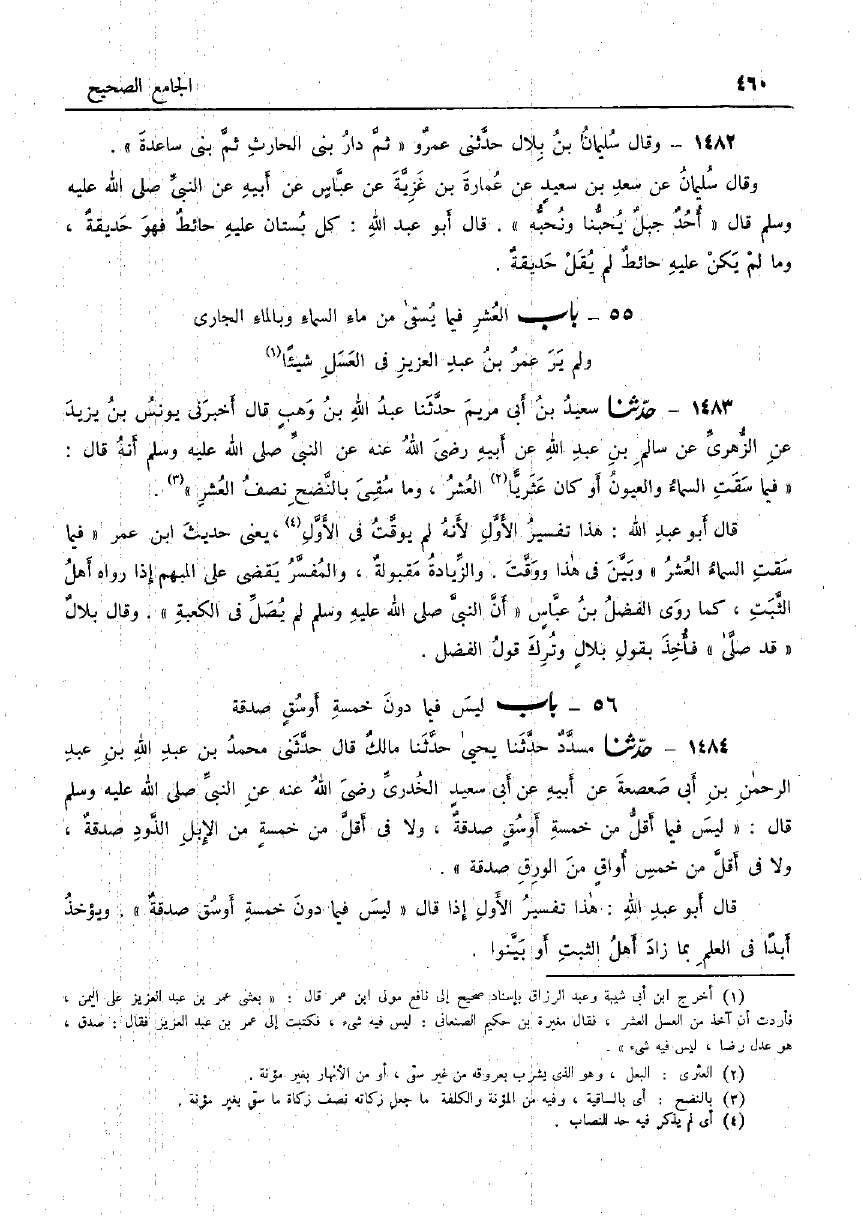 ٤٦٠
الجامع الصحيح
١٤٨٢ - وقال سُليمانُ بنُ بِلال حدَّثنى عمرٌو « ثمَّ دارُ بنى الحارثِ ثمَّ بنى ساعدةَ » .
وقال سُليمانُ عن سَعدِ بن سعيدٍ عن عُمارةَ بن غَزِيَّةَ عن عبَّاسٍ عن أَبيهِ عن النبىِّ صلى الله عليه
وسلم قال « أُحُدٌ جبلٌ يُحبُّنا ونُحبُّه » . قال أَبو عبد اللهِ : كل بُستان عليهِ حائطٌ فهوَ حَديقةٌ ،
وما لمْ يَكنْ عليهِ حائطٌ لم يُقَلْ حَديقةٌ .
٥٥ - باب العُشرِ فيما يُسقىٰ من ماءِ السماءِ وبالماءِ الجارى
ولم يَرَ عمرُ بنُ عبدِ العزيزِ فى العَسَلِ شيئًا(١)
١٤٨٣ - حدّثنا سعيدُ بنُ أَبى مريمَ حدَّثَنا عبدُ اللهِ بنُ وَهبٍ قال أَخبرَنى يونسُ بنُ يزيدَ
عنِ الزُّهرىِّ عن سالمِ بنِ عبدِ اللهِ عن أَبيهِ رضىَ اللهُ عنه عن النبىِّ صلى الله عليه وسلم أَنهُ قال :
« فيما سَقَتِ السماءُ والعيونُ أَو كان عَثَريًّا(٢) العُشرُ ، وما سُقِىَ بالنَّضحِ نصفُ العُشرِ »(٣) .
قال أَبو عبدِ الله : هذا تفسيرُ الأَوَّلِ لأَنهُ لم يوقَّتْ فى الأَوَّلِ(٤) ، يعنى حديثَ ابن عمر « فيما
سَقتِ السماءُ العُشرُ » وبَيَّنَ فى هٰذا ووَقَّتَ . والزِّيادةُ مَقبولةٌ ، والمُفسَّرُ يَقضى على المبهمِ إذا رواه أَهلُ
الثَّبَتِ ، كما روَى الفضلُ بنُ عبَّاسٍ « أَنَّ النبىَّ صلى الله عليهِ وسلم لم يُصَلِّ فى الكعبةِ » . وقال بلالٌ
« قد صلَّىٰ » فأُخِذَ بقولِ بلالٍ وتُرِكَ قولُ الفضل .
٥٦ - باب ليسَ فيما دونَ خمسةِ أَوسُقٍ صدقة
١٤٨٤ - حدّثنا مسدَّدٌ حدَّثَنا يحيىٰ حدَّثَنا مالكٌ قال حدَّثَنى محمدُ بن عبدِ اللهِ بنِ عبدِ
الرحمٰنِ بنِ أَبى صَعصعةَ عن أَبيهِ عن أَبى سعيدٍ الخُدرىِّ رضىَ اللهُ عنه عنِ النبىِّ صلى الله عليه وسلم
قال : « ليسَ فيما أَقلُّ من خمسةِ أَوسُقٍ صدقةٌ ، ولا فى أَقلَّ من خمسةٍ من الإبلِ الذَّودِ صدقةٌ ،
ولا فى أَقلَّ من خمسِ أَواقٍ منَ الورِقِ صدقة » .
قال أَبو عبدِ اللهِ : هٰذا تفسيرُ الأَولِ إذا قال « ليسَ فيما دونَ خمسةِ أَوسُق صدقةٌ » . ويؤخذُ
أَبدًا فى العلمِ بما زادَ أَهلُ الثبتِ أَو بَيَّنوا .
(١) أخرج ابن أبى شيبة وعبد الرزاق بإسناد صحيح إلى نافع مولى ابن عمر قال : « بعثنى عمر بن عبد العزيز على اليمن ،
فأردت أن آخذ من العسل العشر ، فقال مغيرة بن حكيم الصنعانى : ليس فيه شىء ، فكتبت إلى عمر بن عبد العزيز فقال : صدق ،
هو عدل رضا ، ليس فيه شىء » .
(٢) العثرى : البعل ، وهو الذى يشرب بعروقه من غير سقى ، أو من الأنهار بغير مؤنة .
(٣) بالنضح : أى بالساقية ، وفيه من المؤنة والكلفة ما جعل زكاته نصف زكاة ما سقى بغير مؤنة .
(٤) أى لم يذكر فيه حد للنصاب .